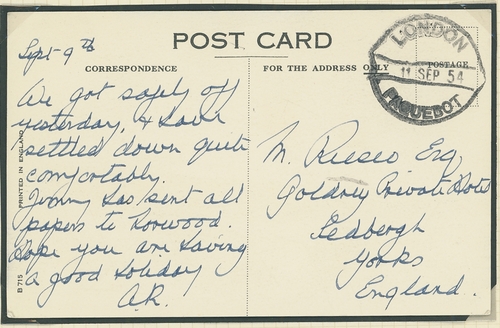 POST CARD
Sept-9th
CORRESPONDENCE
We got safely off
yesterday, & have
settled down quite
comfortably.
has sent all
papers to Norwood.
Hope you are having
a good holiday
A.R.
PRINTED IN ENGLAND
B 715
FOR THE ADDRESS ONLY
POSTAGE
LONDON
11 SEP 54
PAQUEBOT
M. Esq
Private Hotel
Sedbergh
Yorks
England.